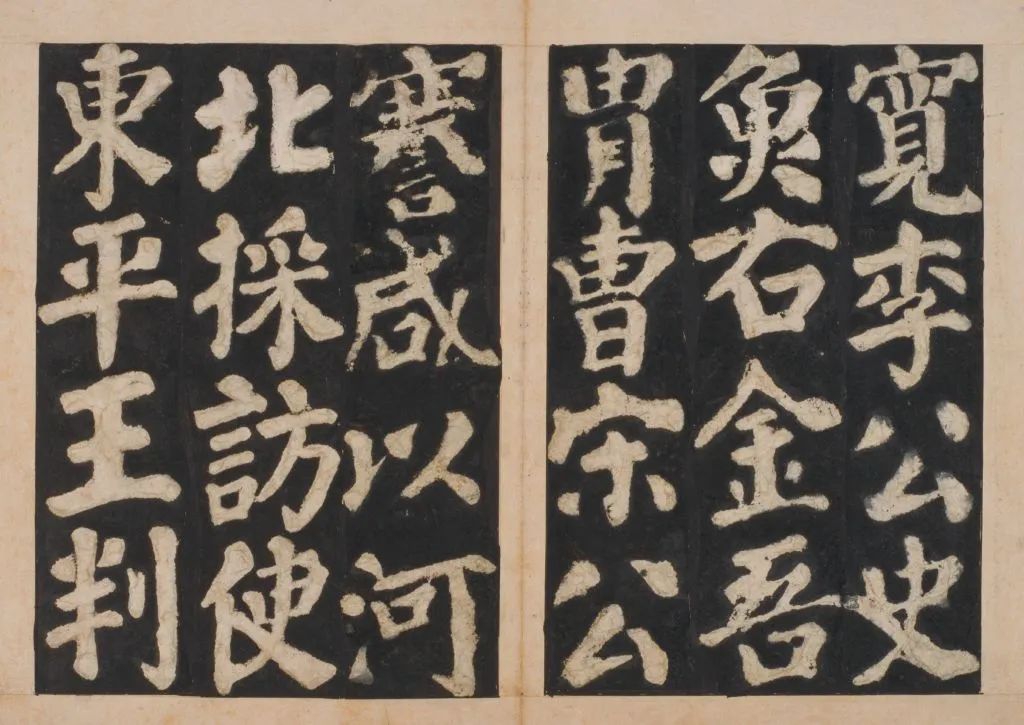 寬李公史
魚右金吾
胄曹宋公
謇咸以河
北採訪使
東平王判